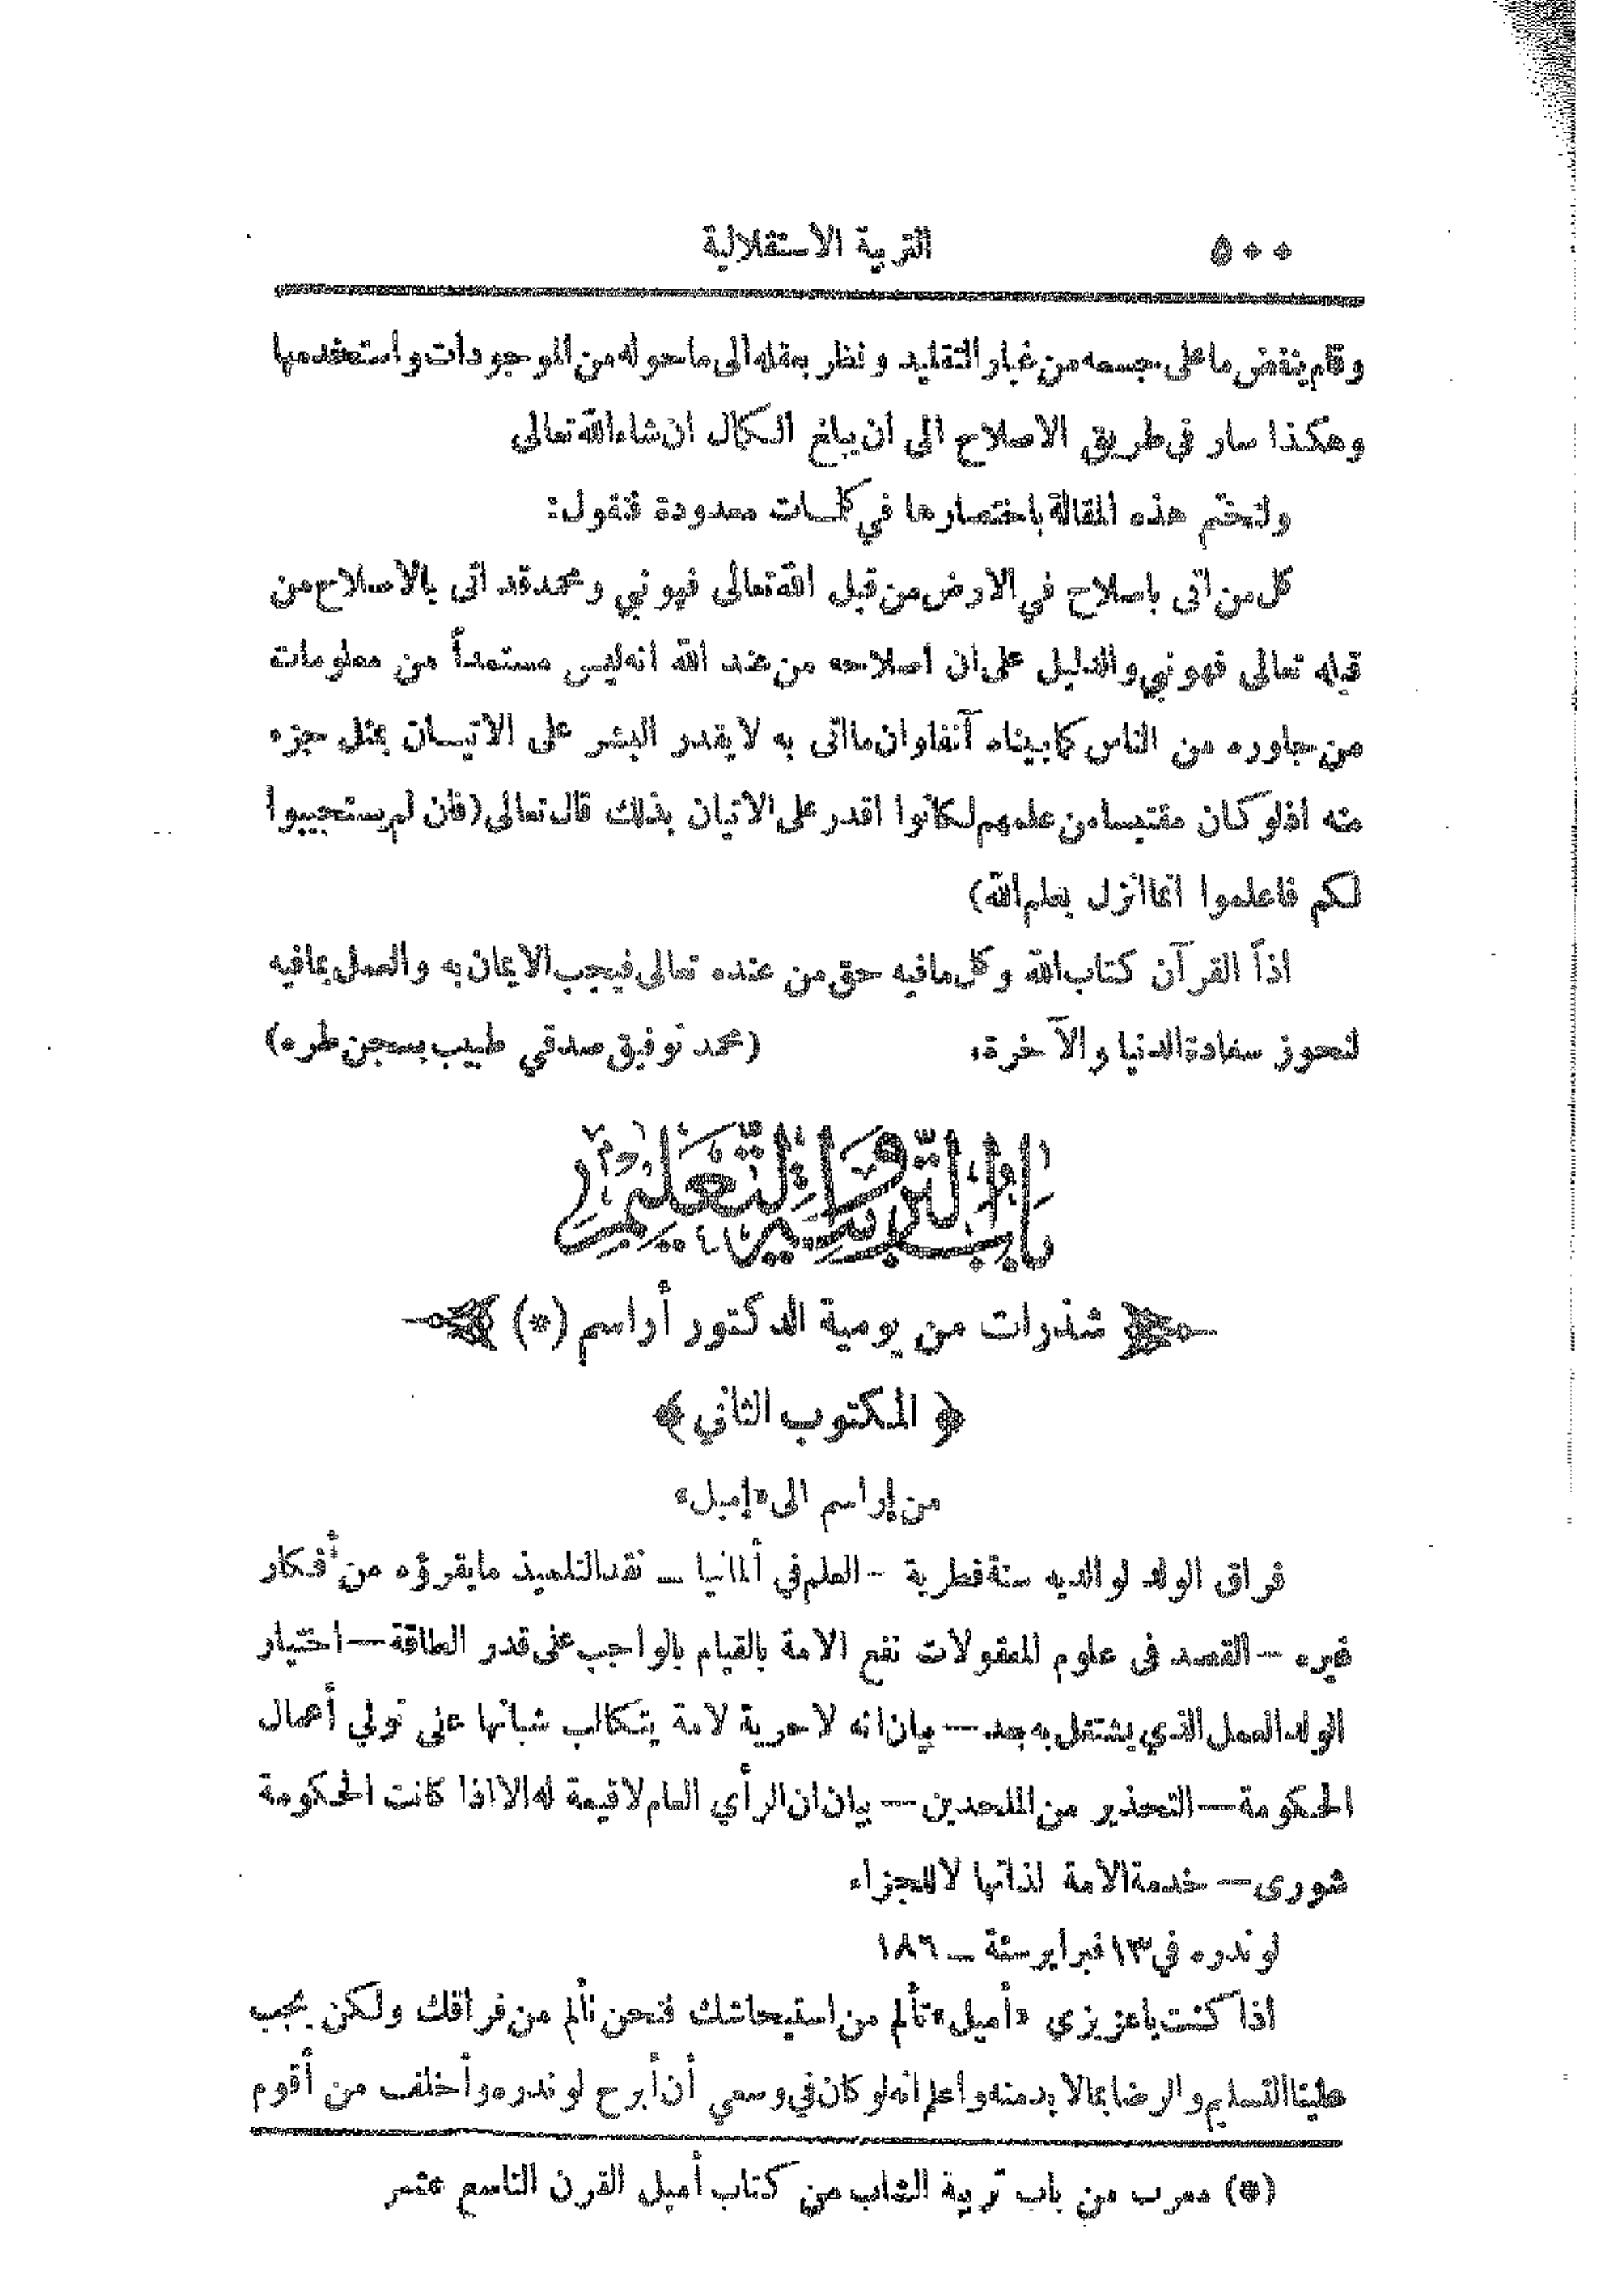 ٥٠٠ التربية الاستقلالية
وقام ينفض ما على جسمه من غبار التقليد ونظر بعقله الى ما حوله من الموجودات واستخدمها
وهكذا سار في طريق الاصلاح الى ان يبلغ الكمال ان شاء الله تعالى
ولنختم هذه المقالة باختصارها في كلمات معدودة فنقول:
كل من أتى باصلاح في الارض من قبل الله تعالى فهو نبي ومحمد قد أتى بالاصلاح من
قبله تعالى فهو نبي والدليل على ان اصلاحه من عند الله انه ليس مستمداً من معلومات
من جاوره من الناس كما بيناه آنفا وان ما اتى به لا يقدر البشر على الاتيان بمثل جزء
منه اذ لو كان مقتبسا من علمهم لكانوا اقدر على الاتيان بذلك قال تعالى (فان لم يستجيبوا
لكم فاعلموا انما انزل بعلم الله)
اذاً القرآن كتاب الله وكل ما فيه حق من عنده تعالى فيجب الايمان به والعمل بما فيه
لنحوز سعادة الدنيا والآخرة. (محمد توفيق صدقي طبيب بسجن طره)
باب التربية والتعليم
شذرات من يومية الدكتور أراسم (*)
﴿ المكتوب الثاني ﴾
من إراسم الى «إميل»
فراق الولد لوالديه سنة فطرية - العلم في ألمانيا - نقد التلميذ ما يقرؤه من أفكار
غيره - القصد في علوم المعقولات نفع الامة بالقيام بالواجب على قدر الطاقة - اختيار
الولد العمل الذي يشتغل به بجد - بيان انه لا حرية لامة يتكالب شبانها على تولي أعمال
الحكومة - التحذير من الملحدين - بيان ان الرأي العام لا قيمة له الا اذا كانت الحكومة
شورى - خدمة الامة لذاتها لا للجزاء
لوندره في ١٣ فبراير سنة - ١٨٦
اذا كنت يا عزيزي «أميل» تألم من استيحاشك فنحن نألم من فراقك ولكن يجب
علينا التسليم والرضا بما لا بد منه واعلم انه لو كان في وسعي أن أبرح لوندره وأخلف من أقوم
(*) معرب من باب تربية الشاب من كتاب أميل القرن التاسع عشر